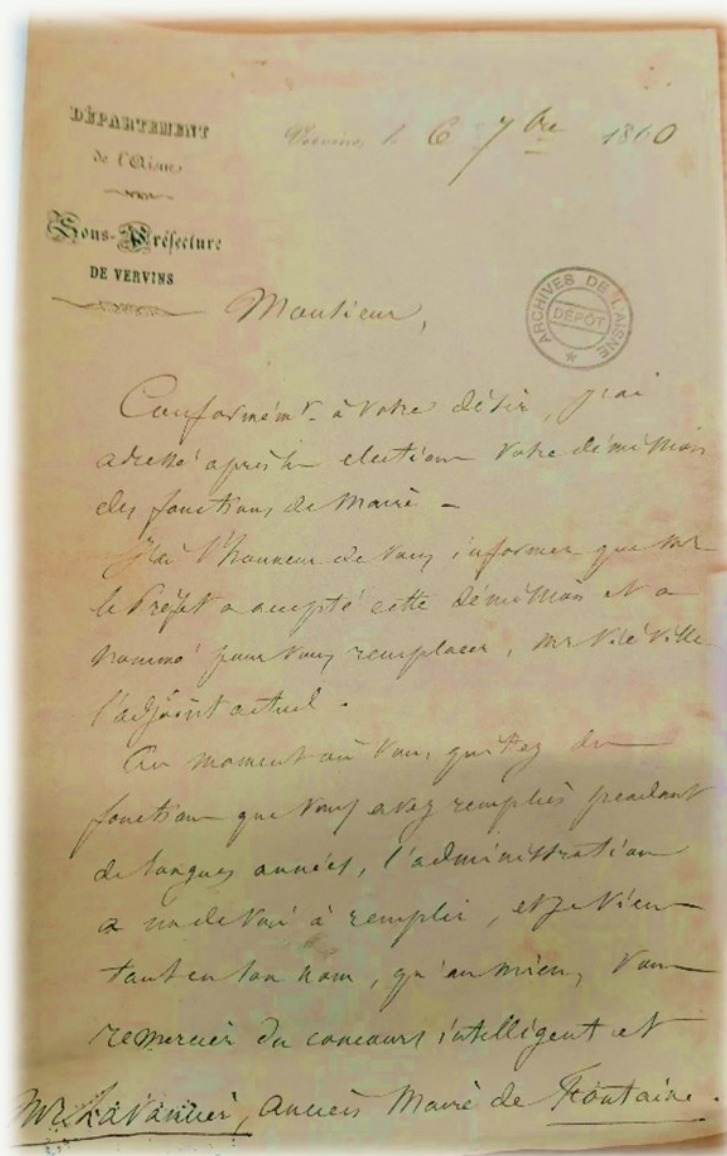 DÉPARTEMENT
de l'Aisne
Sous-Préfecture
DE VERVINS
Vervins, le 6 7bre 1860
ARCHIVES DE L'AISNE
DÉPÔT
Monsieur,
Conformémt à votre désir, j'ai
adressé après les elections votre démission
des fonctions de Maire -
J'ai l'honneur de vous informer que Mr
le Préfet a accepté cette démission et a
nommé pour vous remplacer, Mr Viéville
l'adjoint actuel.
Au moment où vous quittez des
fonctions que vous avez remplies pendant
de longues années, l'administration
a un devoir à remplir, et je viens
tant en son nom, qu'au mien, vous
remercier du concours intelligent et
Mr, ancien Maire de Fontaine.